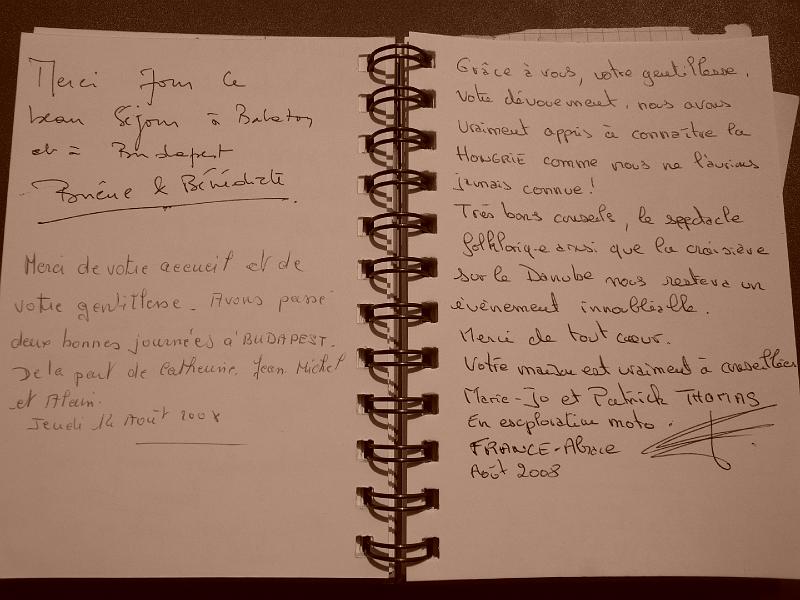 Merci pour ce
beau séjour à Balaton
et à Budapest
& Bénédicte
Merci de votre accueil et de
votre gentillesse. Avons passé
deux bonnes journées à BUDAPEST.
De la part de Catherine, Jean Michel
et Alain.
Jeudi 14 Août 2008
Grâce à vous, votre gentillesse,
votre dévouement, nous avons
vraiment appris à connaître la
HONGRIE comme nous ne l'aurions
jamais connue !
Très bons conseils, le spectacle
folklorique ainsi que la croisière
sur le Danube nous restera un
évènement inoubliable.
Merci de tout cœur.
Votre maison est vraiment à conseiller
Marie-Jo et Patrick THOMAS
En exploration moto.
FRANCE-Alsace
Août 2008